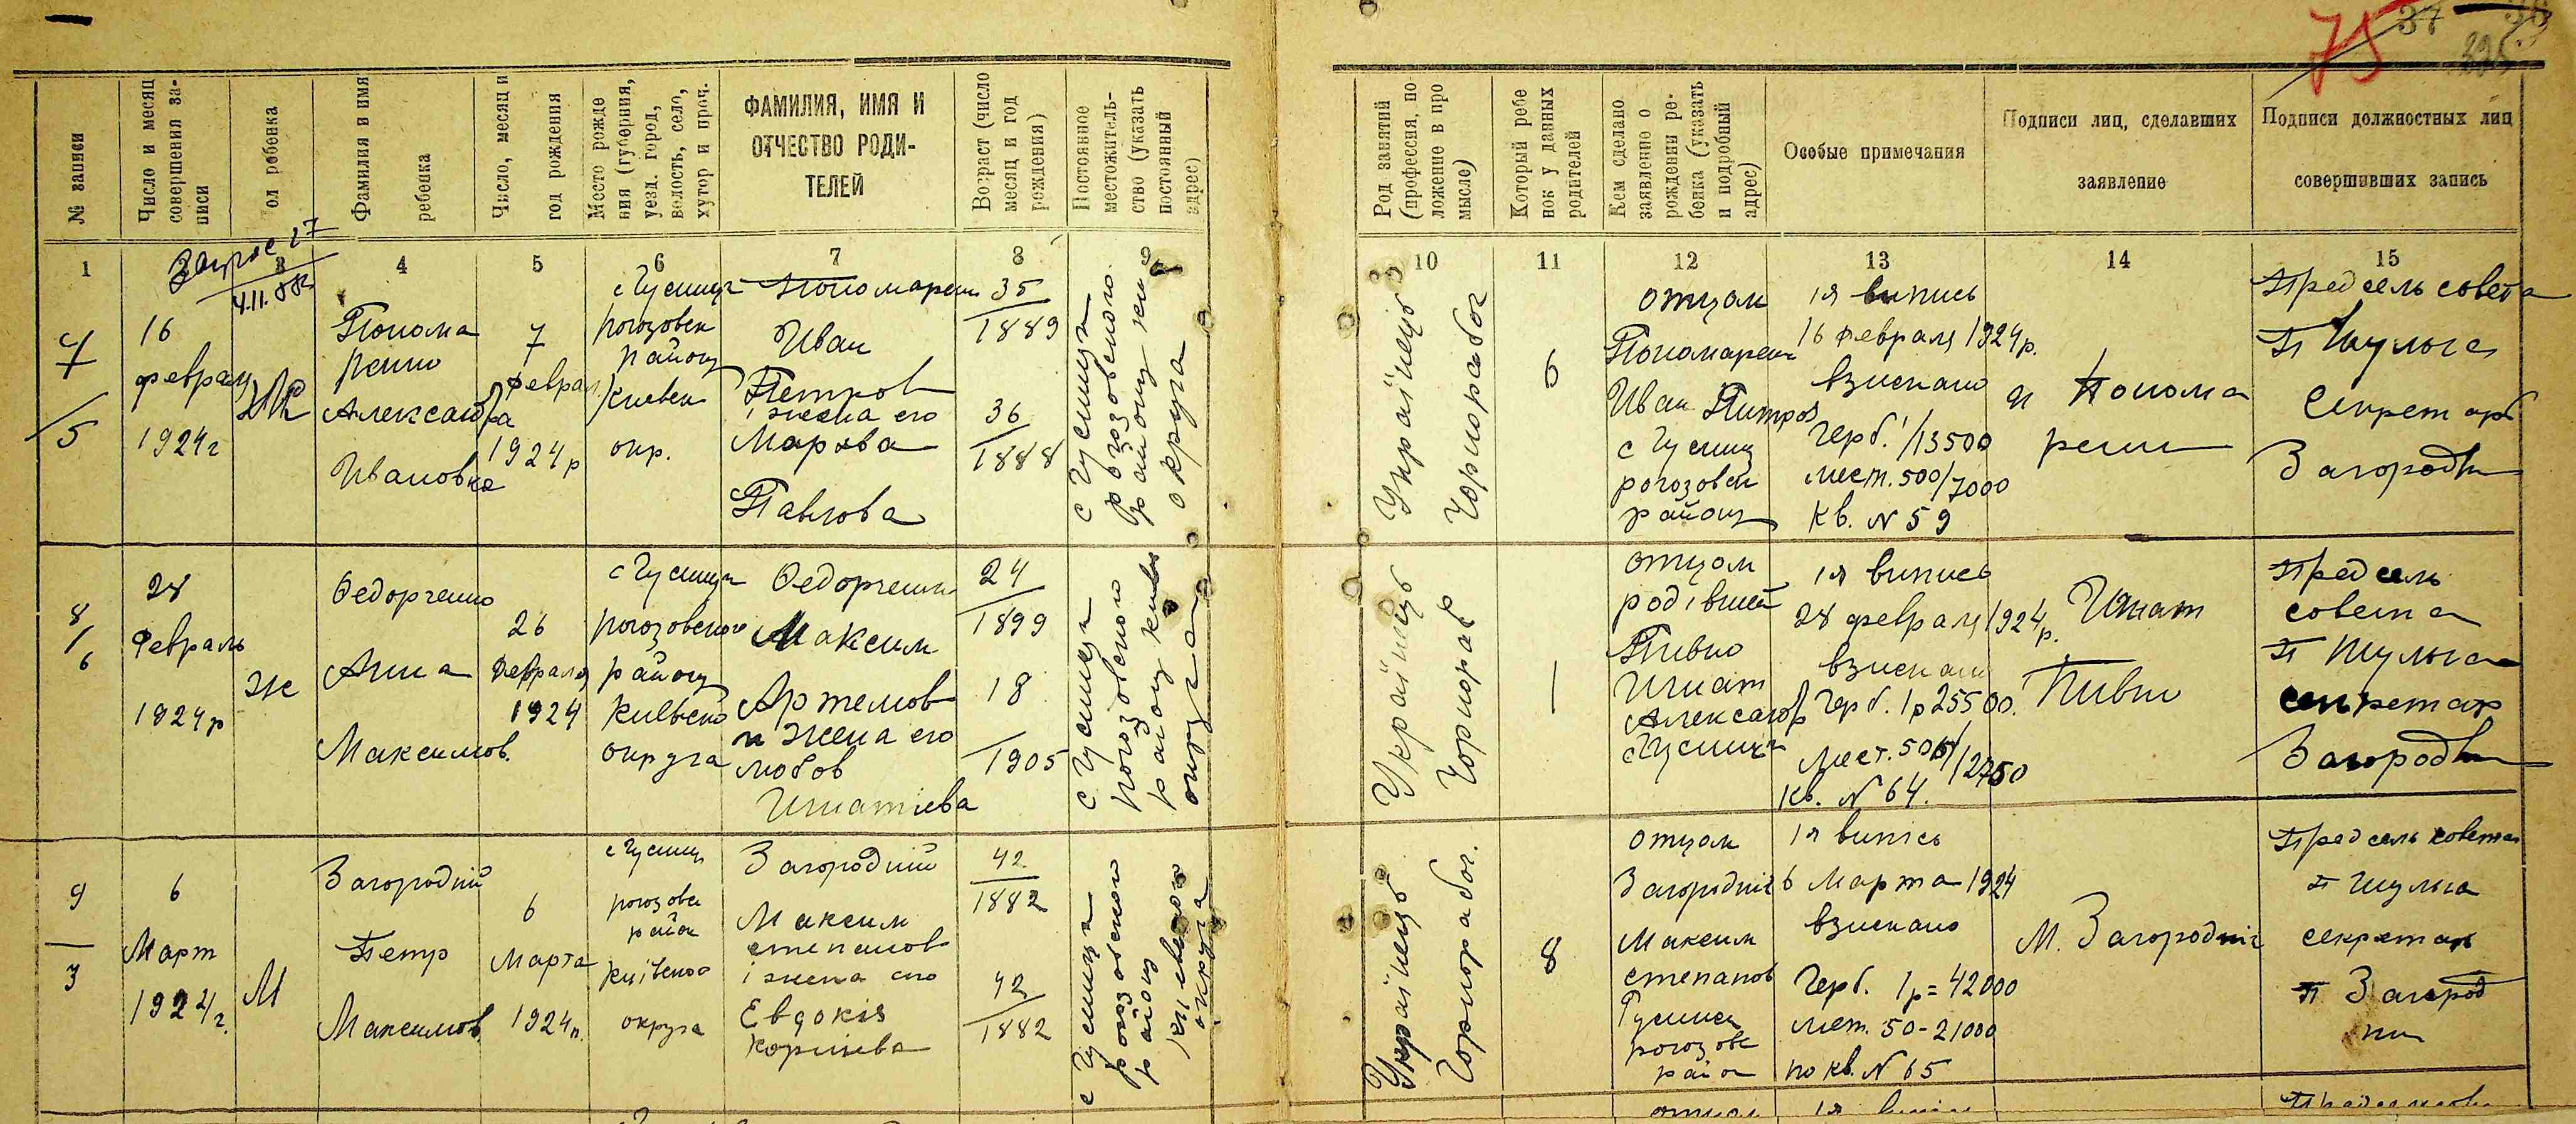 75 37
№ записи
Число и месяц
совершения за-
писи
ол ребенка
Фамилия и имя
ребенка
Число, месяц и
год рождения
Место рожде
ния (губерния,
уезд. город,
волость, село,
хутор и проч.
ФАМИЛИЯ, ИМЯ И
ОТЧЕСТВО РОДИ-
ТЕЛЕЙ
Возраст (число
месяц и год
рождения)
Постоянное
местожитель-
ство (указать
постоянный
адрес)
Род занятий
(профессия, по
ложение в про
мысле)
Который ребе
нок у данных
родителей
Кем сделано
заявление о
рождении ре-
бенка (указать
и подробный
адрес)
Особые примечания
Подписи лиц, сделавших
заявление
Подписи должностных лиц
совершивших запись
1 2 3 4 5 6 7 8 9 10 11 12 13 14 15
7
5
16
февраля
1924г
Понома
ренко
Александра
Ивановна
7
феврал
1924р
с Гусинця
рогозовск
району
Киевск
окр.
Пономаренко
Иван
Петров
і жена его
Марфа
Павлова
35
1889
36
1888
с Гусинця
рогозовского
району
округа
Українець
Чорнорабоч
6
отцом
Пономаренк
Иван Петров
с Гусинц
рогозовск
району
1я випись
16 февраля 1924р.
взискано
герб. 1/13500
мест. 500/7000
Кв. № 59
И Понома
ренко
Пред сель совета
П Шульга
Секретарь
Загородн
8
6
28
Февраль
1924р
же
Федорченко
Анна
Максимов.
26
февраля
1924
с Гусинця
рогозовского
району
Киевско
округа
Федорченко
Максим
Артемов
и жена его
любов
Игнатіева
24
1899
18
1905
с Гусинця
рогозовского
району киев
округа
Українець
Чорнораб
1
отцом
родівшей
Пивно
Игнат
Александр
с Гусинця
1я випись
28 февраля 1924р.
взискано
герб. 1р 25500.
мест. 50
Кв. № 64.
Игнат
Пивно
Пред сель
совета
П Шульга
секретар
Загородн
9
3
6
Март
1924г.
М
Загородній
Петр
Максимов
6
Марта
1924р.
с Гусинц
рогозовск
район
Київско
округа
Загородній
Максим
степанов
і жена его
Евдокія
Корніева
42
1882
42
1882
с Гусинця
рогозовского
району
киевского
округа
Українець
Чорнорабоч.
8
отцом
Загородній
Максим
степанов
Гусинця
рогозовс
район
1я випісь
6 Марта 1924
взискано
герб. 1р = 42000
мест. 50 - 21000
по кв. № 65
М. Загородній
Пред сель совета
П Шульга
секретар
П Загород
ни
отцом